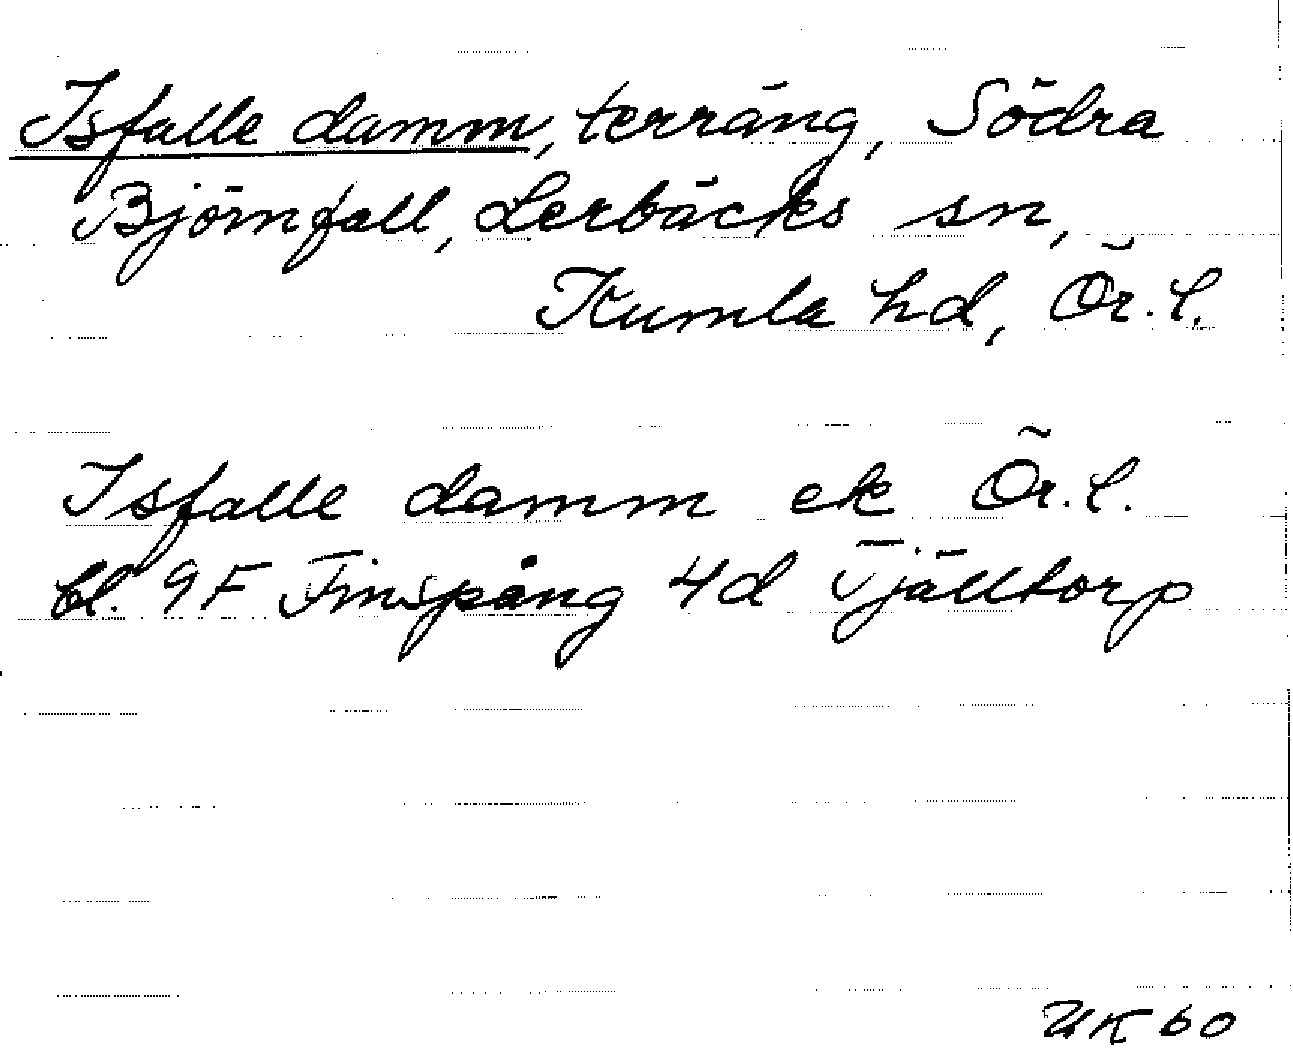 Isfalle damm, terräng, Södra
Björnfall, Lerbäcks sn,
Kumla hd, Ör. l.
Isfalle damm ek Ör. l.
bl. 9 F Finspång 4d Tjälltorp
UK 60